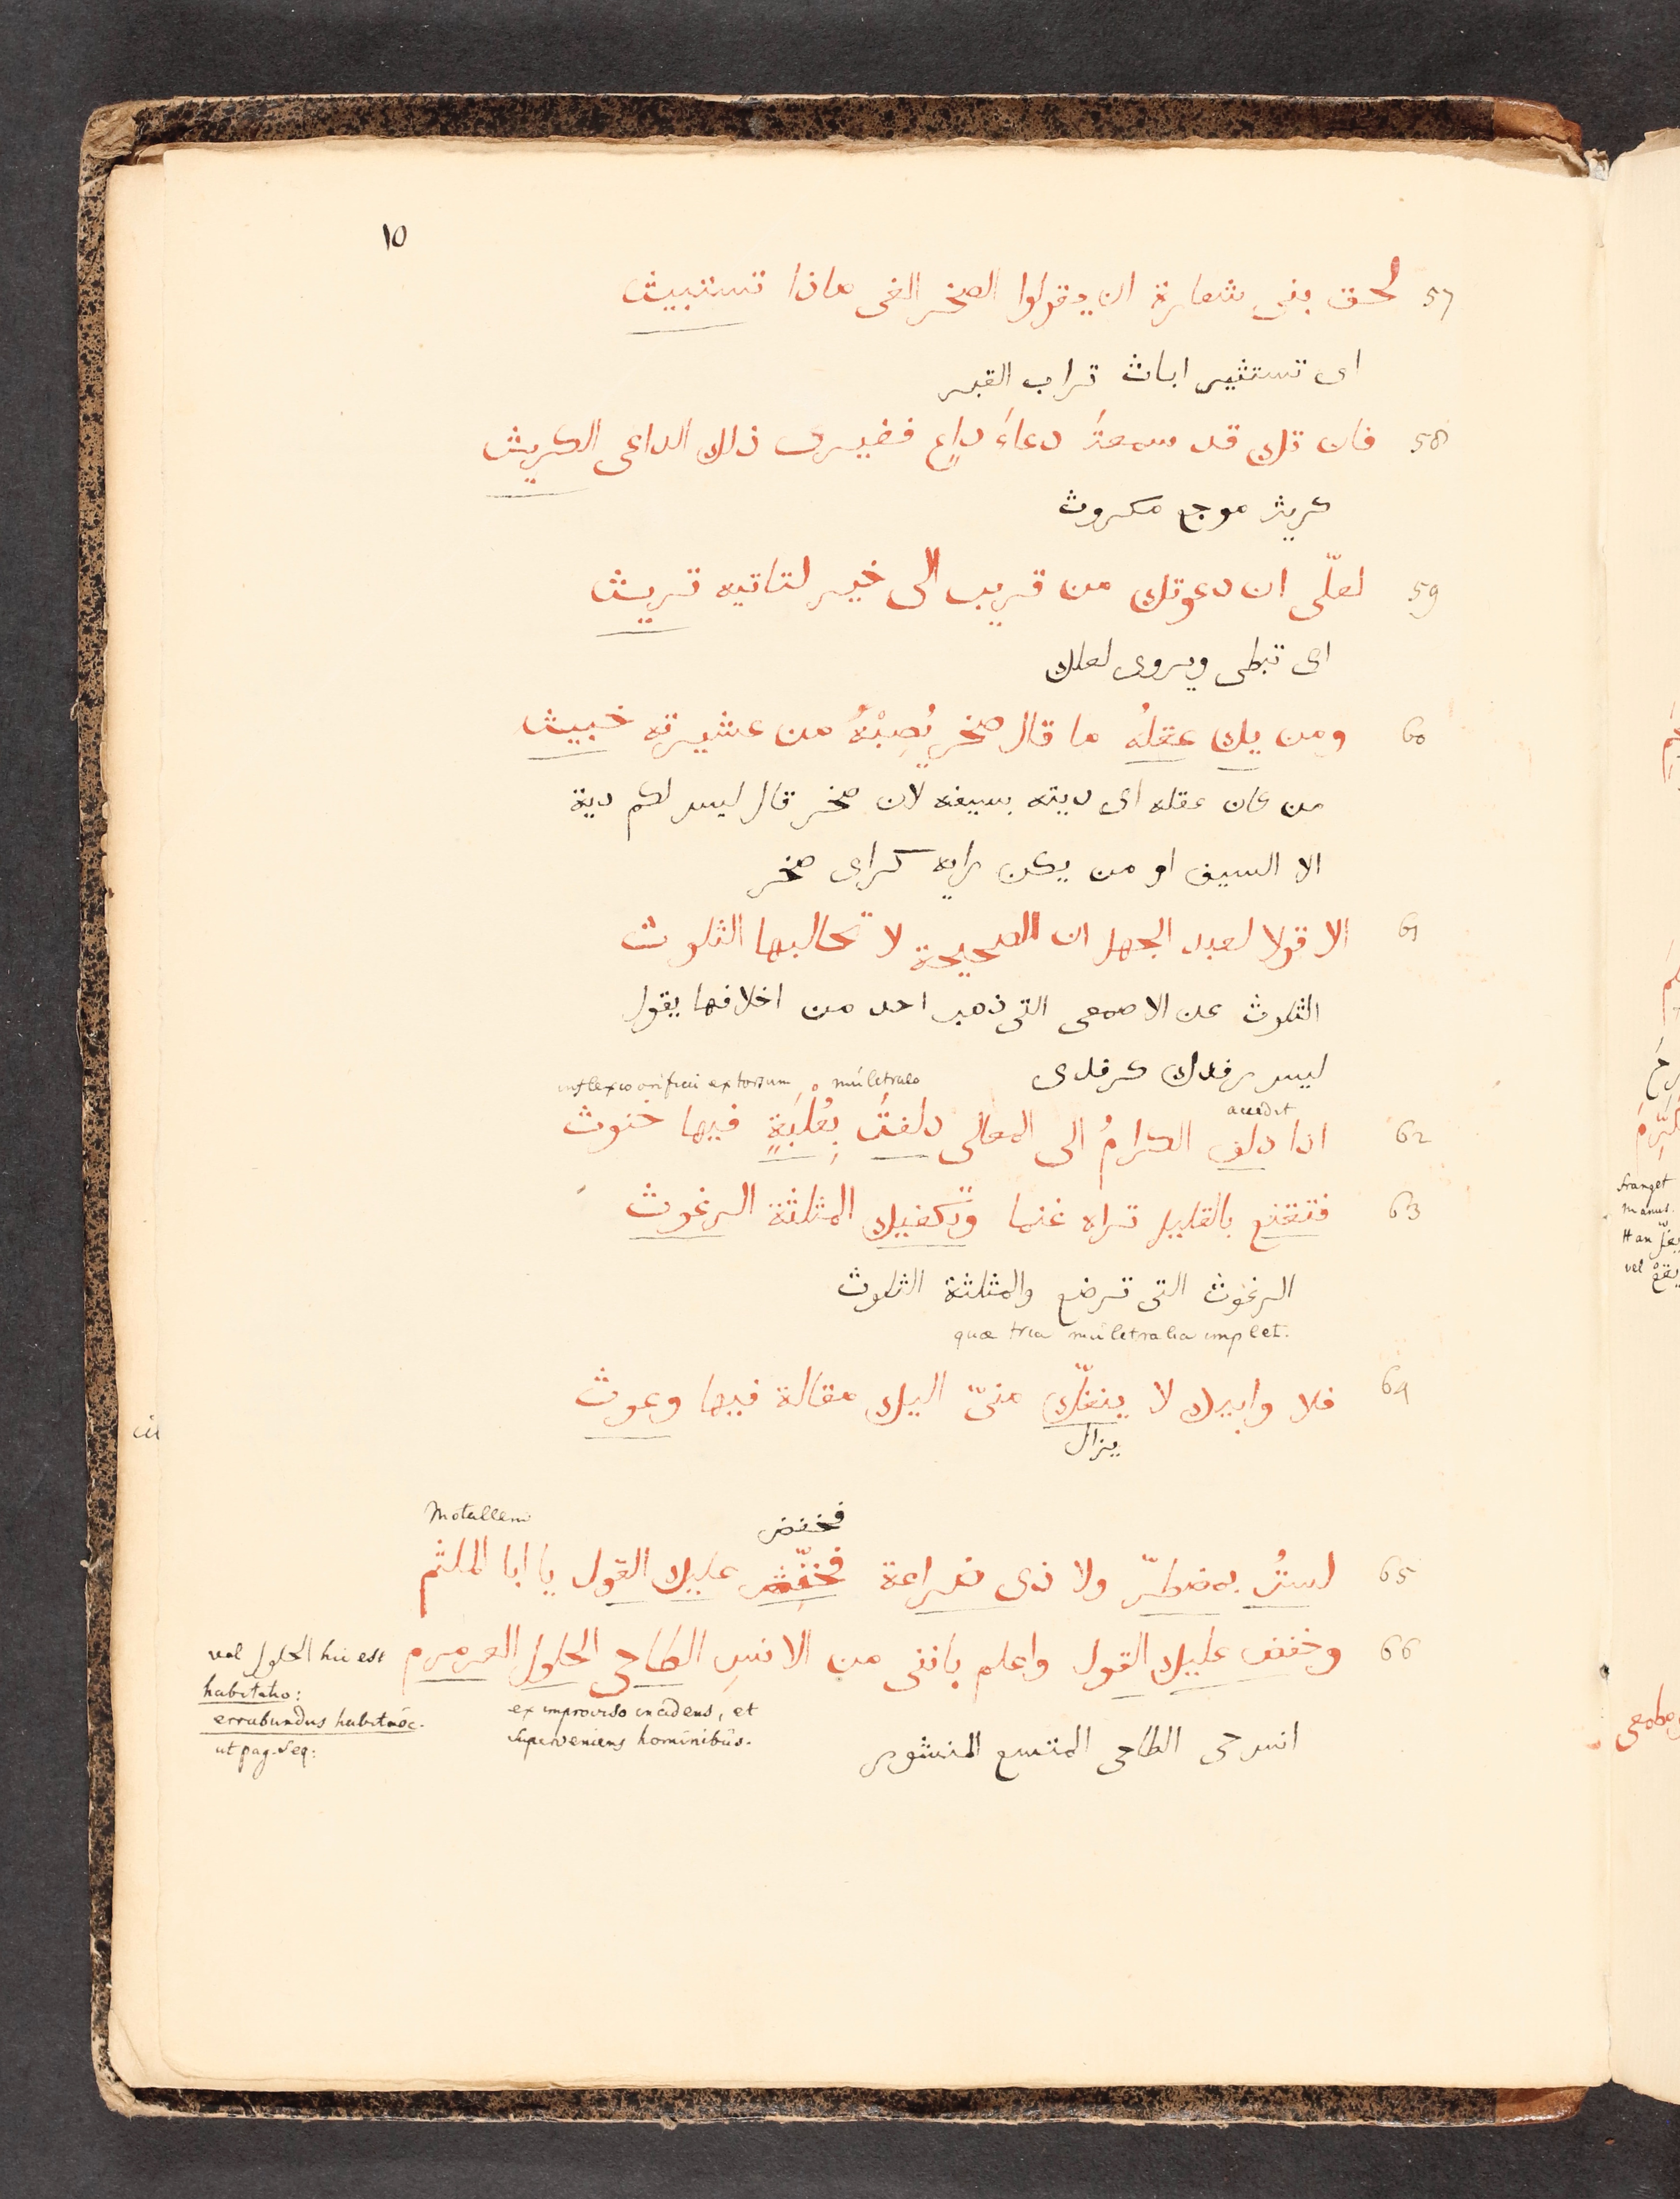 ١٥
57 لحق بنى شعارة ان يقولوا لصخر الغى ماذا تستبيث
اى تستثير اباث تراب القبر
58 فان تك قد سمعتَ دعاءَ داعٍ فغيرى ذلك الداعى الكريث
كريث موجع مكروث
59 لعلّى ان دعوتك من قريب الى خير لتاتيه تريث
اى تبطى ويروى لعلك
60 ومن يك عقلُه ما قال صخر يُصِبْهُ من عشيرته خبيث
من كان عقله اى ديته بسيفه لان صخر قال ليس لكم دية
الا السيف او من يكن رايه كراى صخر
61 الا قولا لعبد الجهل ان الصحيحة لا تحالبها الثلوث
الثلوث عن الاصمعى التى ذهب احد من اخلافها يقول
ليس رفدك كرفدى
inflexio orificii extorsum, mulctrale
accedit
62 اذا دلف الكرامُ الى المعالى دلفتَ بِعُلبَةٍ فيها خنوث
63 فتقنع بالقليل تراه غنما وتكفيك المثلثة الرغوث
الرغوث التى ترضع والمثلثة الثلوث
quæ tria mulctralia implet.
64 فلا وابيك لا ينفكّ منىّ اليك مقالة فيها وعوث
يزال
Motallemi
فخفض
65 لستُ بمضطرّ ولا ذى ضراعة فخفِّض عليك القول يا ابا المثلم
66 وخفض عليك القول واعلم باننى من الانسِ الطاحى الحلول العرمرم
vel الحلول hic est
habitatio:
errabundus habitac.
ut pag. seq:
ex improviso incidens, et
superveniens hominibus.
انس حى الطاحى المتسع المنشور
franget
manus.
vel